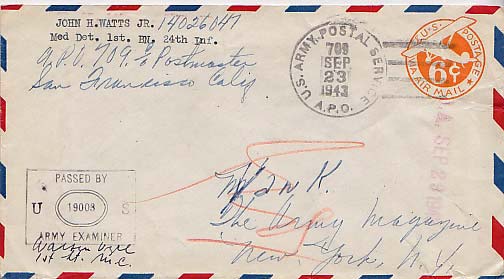 JOHN H. WATTS JR. 14026047
Med Det. 1st. BN, 24th Inf.
A.P.O. 709, % Postmaster
San Francisco Calif
U.S. ARMY. POSTAL SERVICE
709
SEP
23
1943
A.P.O.
U.S. POSTAGE
6¢
VIA AIR MAIL
PASSED BY
U 19008 S
ARMY EXAMINER
1st Lt. M.C.
Yank.
The Army Magazine
New York, N.Y.